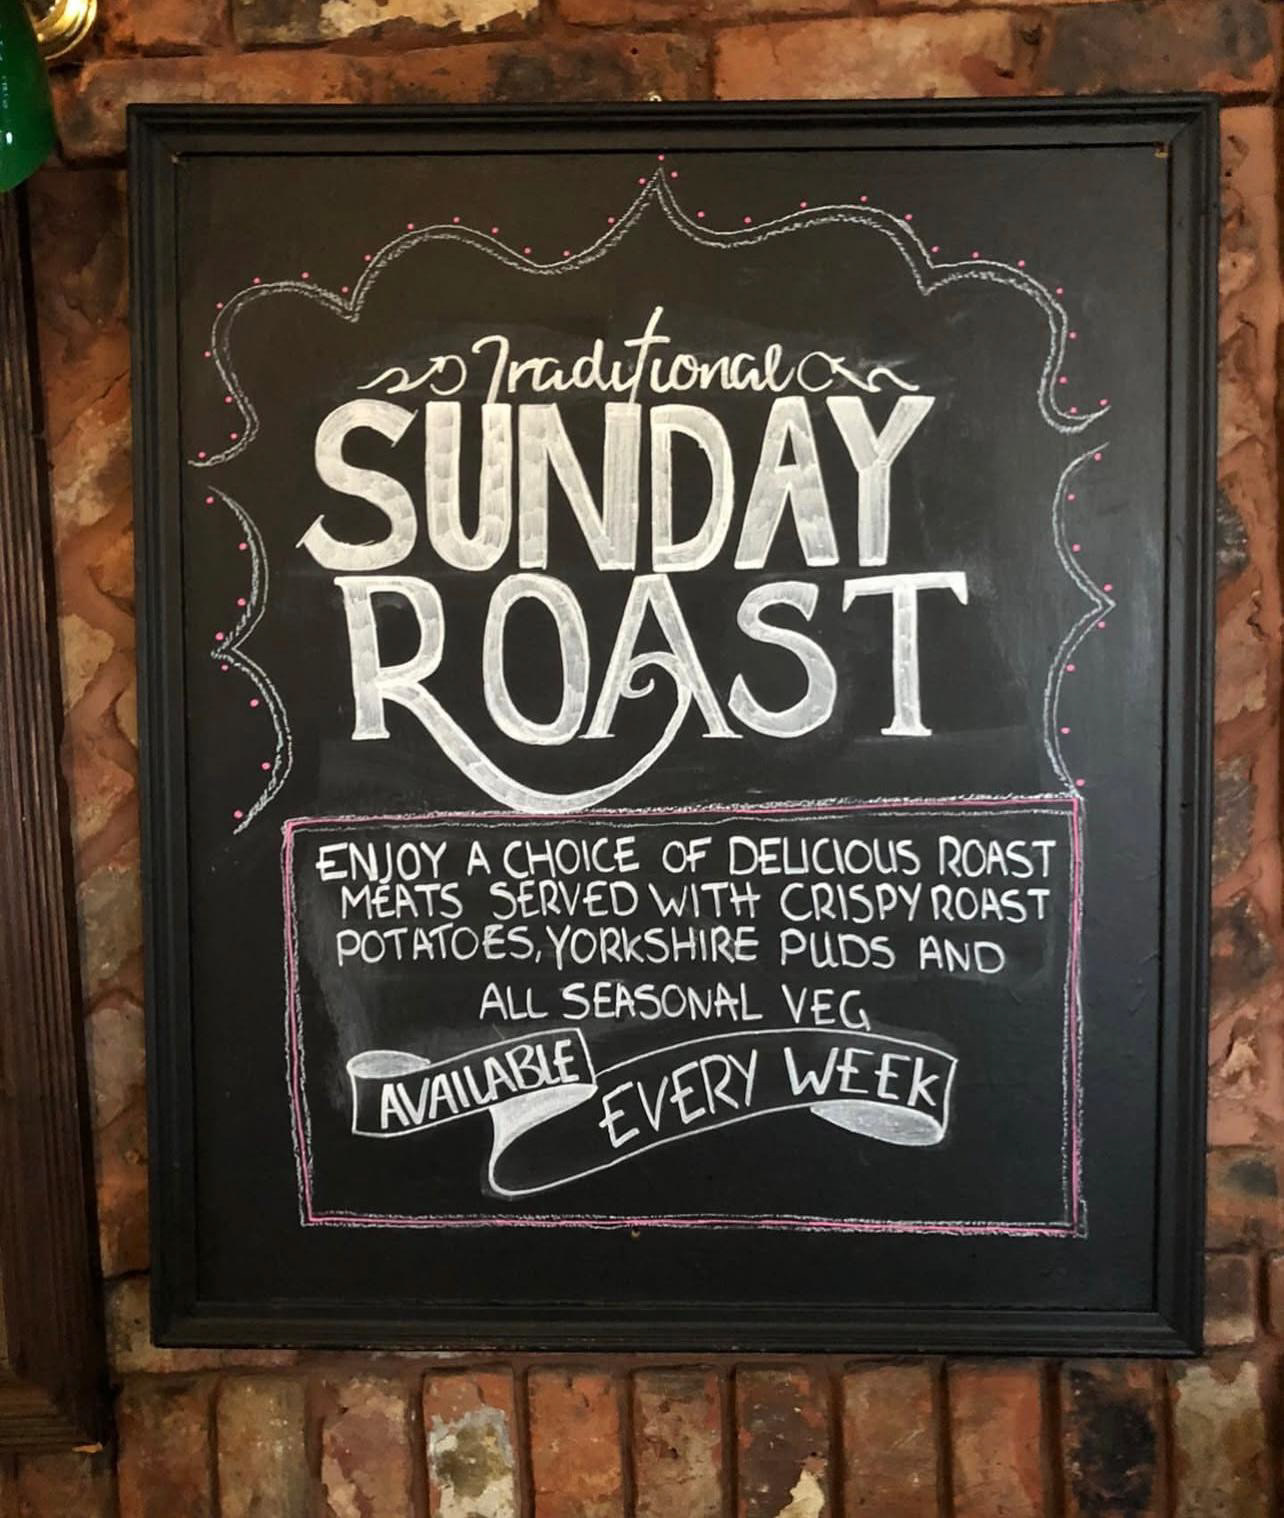 Traditional
SUNDAY
ROAST
ENJOY A CHOICE OF DELICIOUS ROAST
MEATS SERVED WITH CRISPY ROAST
POTATOES, YORKSHIRE PUDS AND
ALL SEASONAL VEG
AVAILABLE EVERY WEEK